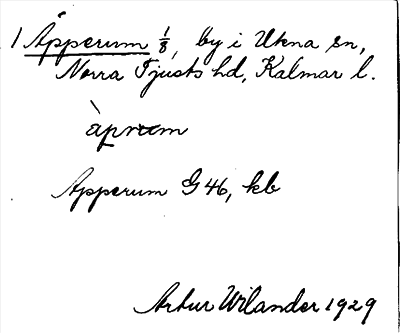 1 Äpperum 1/8, by i Ukna sn,
Norra Tjusts hd, Kalmar l.
àprum
Apperum G 46, kb
Artur Wilander 1929